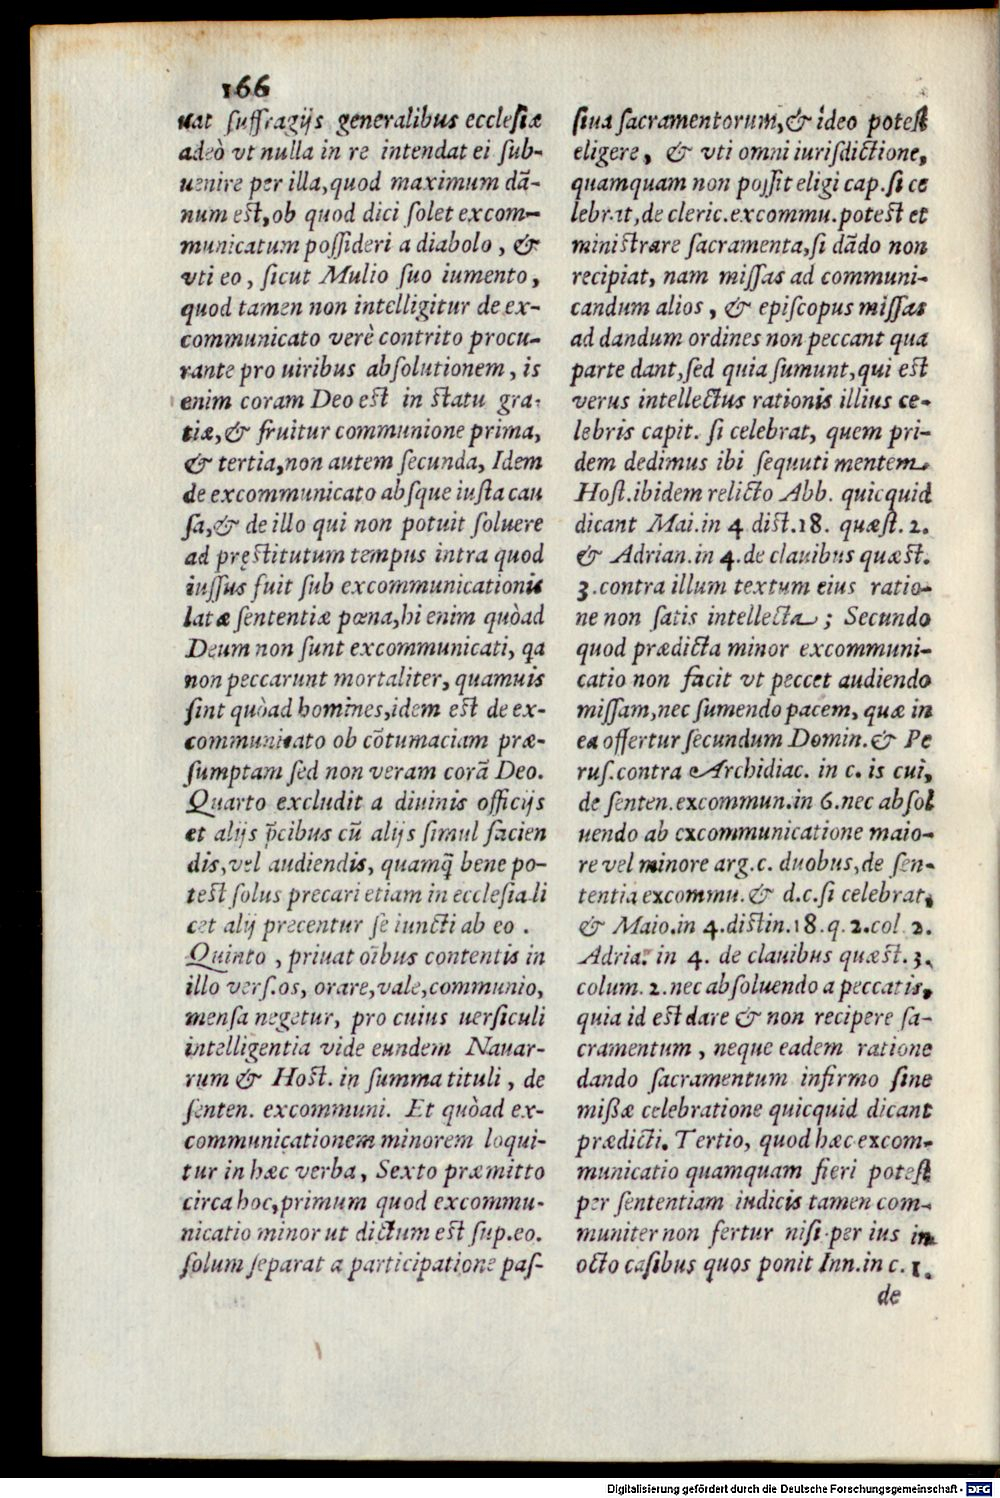 166
uat suffragijs generalibus ecclesiæ
adeò vt nulla in re intendat ei sub-
uenire per illa, quod maximum dā-
num est, ob quod dici solet excom-
municatum possideri a diabolo, &
vti eo, sicut Mulio suo iumento,
quod tamen non intelligitur de ex-
communicato verè contrito procu-
rante pro uiribus absolutionem, is
enim coram Deo est in statu gra-
tiæ, & fruitur communione prima,
& tertia, non autem secunda, Idem
de excommunicato absque iusta cau
sa, & de illo qui non potuit soluere
ad pręstitutum tempus intra quod
iussus fuit sub excommunicationis
latæ sententiæ pœna, hi enim quòad
Deum non sunt excommunicati, qa
non peccarunt mortaliter, quamuis
sint quòad homines, idem est de ex-
communicato ob cōtumaciam præ-
sumptam sed non veram corā Deo.
Quarto excludit a diuinis officijs
et alijs p̄cibus cū alijs simul facien
dis, vel audiendis, quamq̃ bene po-
test solus precari etiam in ecclesia li
cet alij precentur se iuncti ab eo.
Quinto, priuat oībus contentis in
illo vers. os, orare, vale, communio,
mensa negetur, pro cuius uersiculi
intelligentia vide eundem Nauar-
rum & Host. in summa tituli, de
senten. excommuni. Et quòad ex-
communicationem minorem loqui-
tur in hæc verba, Sexto præmitto
circa hoc, primum quod excommu-
nicatio minor ut dictum est sup. eo.
solum separat a participatione pas-
siua sacramentorum, & ideo potest
eligere, & vti omni iurisdictione,
quamquam non possit eligi cap. si ce
lebrat, de cleric. excommu. potest et
ministrare sacramenta, si dādo non
recipiat, nam missas ad communi-
candum alios, & episcopus missas
ad dandum ordines non peccant qua
parte dant, sed quia sumunt, qui est
verus intellectus rationis illius ce-
lebris capit. si celebrat, quem pri-
dem dedimus ibi sequuti mentem
Host. ibidem relicto Abb. quicquid
dicant Mai. in 4 dist. 18. quæst. 2.
& Adrian. in 4. de clauibus quæst.
3. contra illum textum eius ratio-
ne non satis intellecta; Secundo
quod prædicta minor excommuni-
catio non facit vt peccet audiendo
missam, nec sumendo pacem, quæ in
ea offertur secundum Domin. & Pe
rus. contra Archidiac. in c. is cui,
de senten. excommun. in 6. nec absol
uendo ab excommunicatione maio-
re vel minore arg. c. duobus, de sen-
tentia excommu. & d. c. si celebrat,
& Maio. in 4. distin. 18. q. 2. col. 2.
Adria. in 4. de clauibus quæst. 3.
colum. 2. nec absoluendo a peccatis,
quia id est dare & non recipere sa-
cramentum, neque eadem ratione
dando sacramentum infirmo sine
mißæ celebratione quicquid dicant
prædicti. Tertio, quod hæc excom-
municatio quamquam fieri potest
per sententiam iudicis tamen com-
muniter non fertur nisi per ius in
octo casibus quos ponit Inn. in c. 1.
de
Digitalisierung gefördert durch die Deutsche Forschungsgemeinschaft - DFG